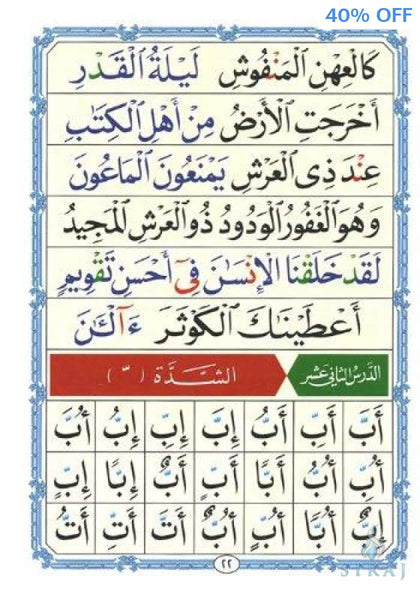 40% OFF
كَالْعِهْنِ الْمَنْفُوشِ لَيْلَةُ الْقَدْرِ
أَخْرَجَتِ الْأَرْضُ مِنْ أَهْلِ الْكِتَٰبِ
عِنْدَ ذِى الْعَرْشِ يَمْنَعُونَ الْمَاعُونَ
وَهُوَ الْغَفُورُ الْوَدُودُ ذُو الْعَرْشِ الْمَجِيدُ
لَقَدْ خَلَقْنَا الْإِنْسَٰنَ فِىٓ أَحْسَنِ تَقْوِيمٍ
أَعْطَيْنَاكَ الْكَوْثَرَ ءَآلْـَٰٔنَ
الدَّرْسُ الثَّانِي عَشَر الشَّدَّة ( ّ )
أَبَّ أَبِّ أَبُّ إِبَّ إِبِّ إِبُّ أُبَّ
أُبِّ أُبُّ أَبًّا أَبٍّ أَبٌّ إِبًّا إِبٍّ
إِبٌّ أُبًّا أُبٍّ أُبٌّ أَتَّ أَتِّ أَتُّ
٢٢
SIRAJ